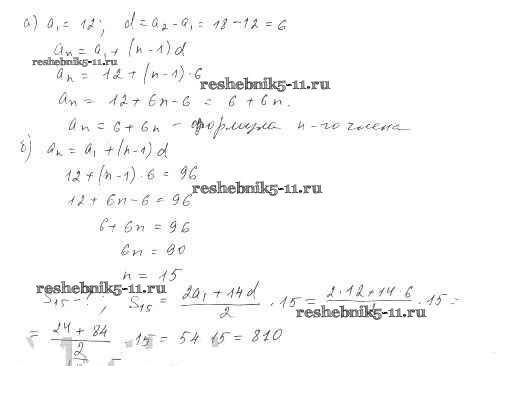 а) a₁ = 12; d = a₂ - a₁ = 18 - 12 = 6
aₙ = a₁ + (n-1)d
reshebnik5-11.ru
aₙ = 12 + (n-1)·6
reshebnik5-11.ru
aₙ = 12 + 6n - 6 = 6 + 6n.
aₙ = 6 + 6n - формула n-го члена
б) aₙ = a₁ + (n-1)d
12 + (n-1)·6 = 96
reshebnik5-11.ru
12 + 6n - 6 = 96
6 + 6n = 96
6n = 90
n = 15
reshebnik5-11.ru
S₁₅ - ?; S₁₅ = (2a₁ + 14d)/2 · 15 = (2·12 + 14·6)/ · 15 =
reshebnik5-11.ru
= (24 + 84)/2 · 15 = 54 15 = 810